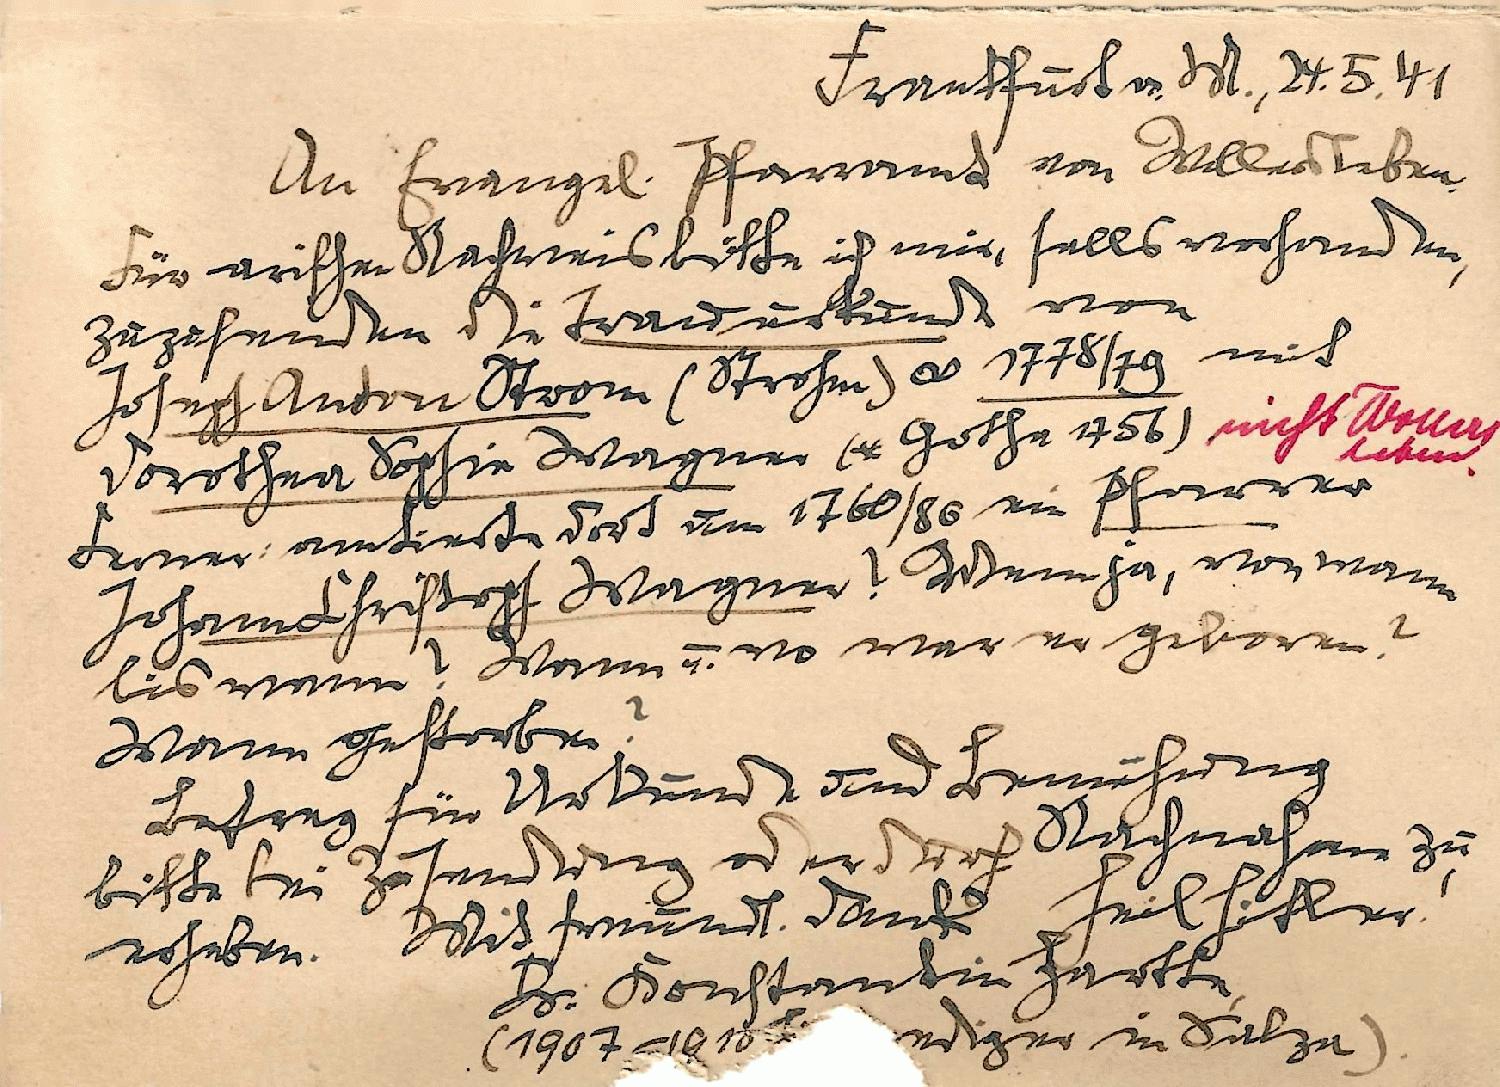 Frankfurt a. M., 24.5.41
An Evangel. Pfarramt von Willersleben.
Für arischen Nachweis bitte ich mir, falls vorhanden,
zuzusenden die Trauurkunde von
Joseph Anton Strom (Strohm) ∞ 1778/79 mit
Dorothea Sophie Wagner (* Gotha 1756) nicht
leben.
Ferner: amtierte dort um 1760/86 ein Pfarrer
Johann Christoph Wagner? Wenn ja, von wann
bis wann? Wann u. wo war er geboren?
Wann gestorben?
Betrag für Urkunde und Bemühung
bitte bei Zusendung oder durch Nachnahme zu
erheben. Mit freundl. Dank Heil Hitler!
Dr. Konstantin
(1907–1910 ediger in Salza).